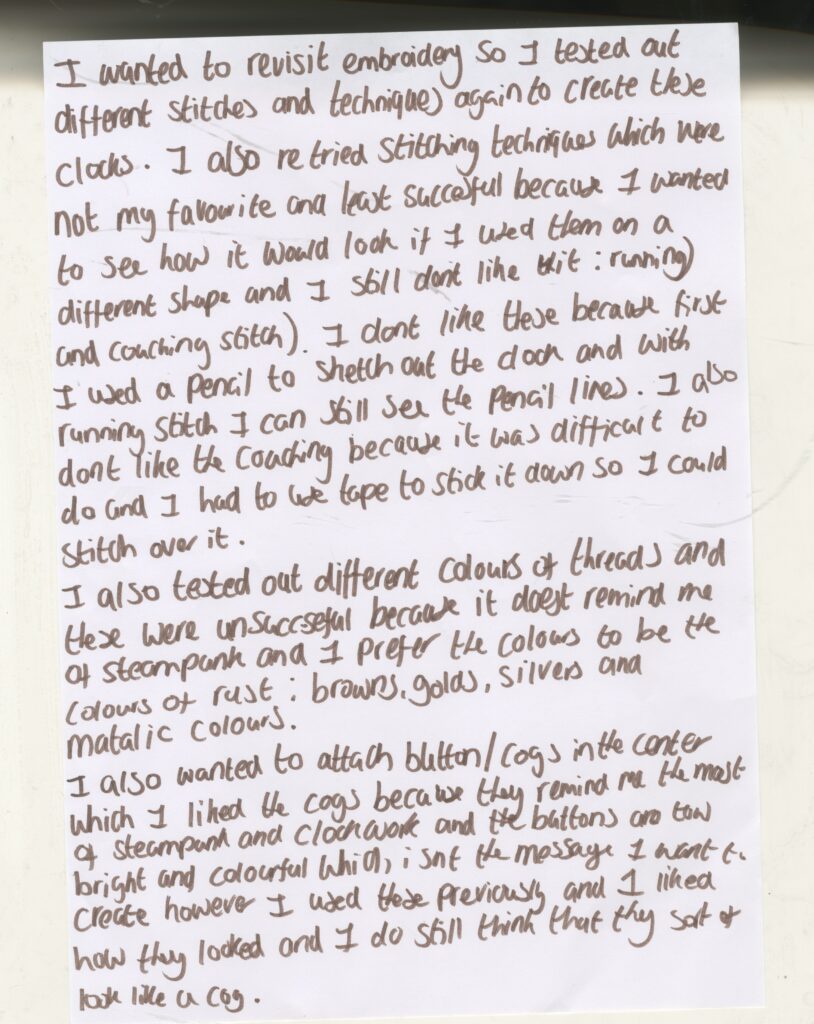 I wanted to revisit embroidery so I tested out
different stitches and techniques again to create these
clocks. I also retried stitching techniques which were
not my favourite and least succesful because I wanted
to see how it would look if I used them on a
different shape and I still dont like it : running)
and couching stitch). I dont like these because first
I used a pencil to sketch out the clock and with
running stitch I can still see the pencil lines. I also
dont like the couching because it was difficult to
do and I had to use tape to stick it down so I could
stitch over it.
I also tested out different colours of threads and
these were unsuccseful because it doest remind me
of steampunk and I prefer the colours to be the
colours of rust : browns, golds, silvers and
matalic colours.
I also wanted to attach button/cogs in the center
which I liked the cogs because they remind me the most
of steampunk and clockwork and the buttons are
bright and colourful which isnt the message I want to
create however I used these previously and I liked
how they looked and I do still think that they sort of
look like a cog.